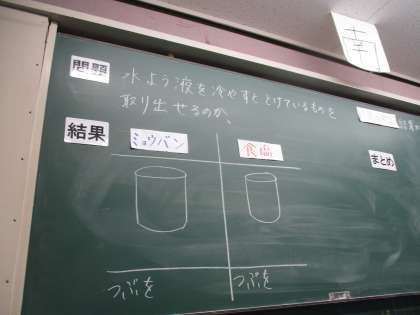 問題
水よう液を冷やすととけているものを
取り出せるのか、
結果
ミョウバン
食塩
まとめ
つぶを
つぶを